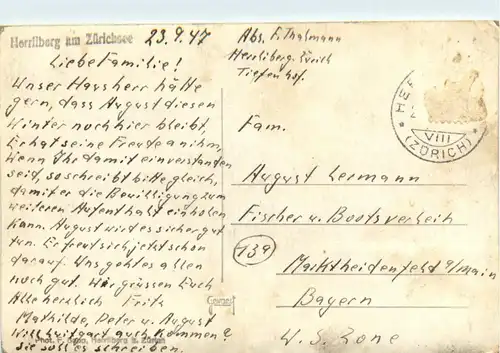 Herrliberg am Zürichsee
23.9.47
Liebe Familie!
Unser Hausherr hätte
gern, dass August diesen
Winter noch hier bleibt,
Er hat seine Freude an ihm,
Wenn Ihr damit einverstanden
seid, so schreibt bitte gleich,
damit er die Bewilligung zum
weiteren Aufenthalt einholen
kann. August wird es sicher gut
tun. Er freut sich jetzt schon
darauf. Uns geht es allen
noch gut. Wir grüssen Euch
Alle herzlich Fritz
Mathilde, Peter u. August
Will Luitgart auch kommen?
sie soll es schreiben.
Phot. F. Herrliberg b. Zürich
Gevaert
Abs. F. Thalmann
Herrliberg-Zürich
Tiefenhof.
VIII
(ZÜRICH)
Fam.
August Lermann
Fischer u. Bootsverleih
13a
Marktheidenfeld a/Main
Bayern
U.S. Zone